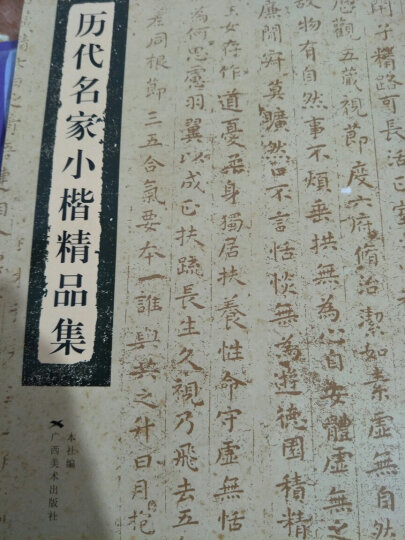 历代名家小楷精品集
本社编
广西美术出版社
子精路可長活正室
觀五藏視節度六府脩治潔如素虛無自然
故物有自然事不煩垂拱無為心自安體虛無之
廉閒寂莫曠然口不言恬惔無為遊德園積精
女存作道憂柔身獨居扶養性命守虛無恬
為何思慮羽翼以成正扶疏長生久視乃飛去五
老同根節三五合氣要本一誰與共之升日月抱